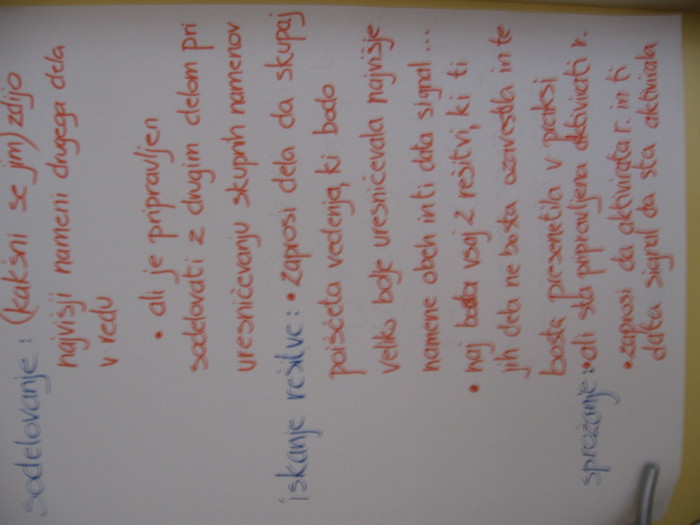 sodelovanje: (kakšni se jim) zdijo
najvišji nameni drugega dela
v redu
• ali je pripravljen
sodelovati z drugim delom pri
uresničevanju skupnih namenov
iskanje rešitve: • zaprosi dela da skupaj
poiščeta vedenja, ki bodo
veliko bolje uresničevala najvišje
namene obeh in ti data signal...
• naj bosta vsaj 2 rešitvi, ki ti
jih dela ne bosta ozavestila in te
bosta presenetila v praksi
sprožanje: • ali sta pripravljena aktivirati r.
• zaprosi da aktivirata r. in ti
data signal da sta aktivirala